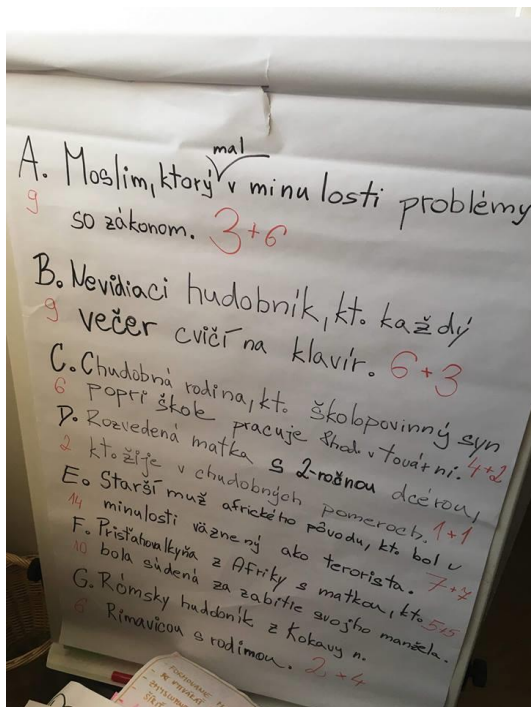 mal
A. Moslim, ktorý v minulosti problémy
9 so zákonom. 3+6
B. Nevidiaci hudobník, kt. každý
9 večer cvičí na klavír. 6+3
C. Chudobná rodina, kt. školopovinný syn
6 popri škole pracuje 8hod v továrni. 4+2
D. Rozvedená matka s 2-ročnou dcérou,
2 kt. žije v chudobných pomeroch. 1+1
E. Starší muž afrického pôvodu, kt. bol v
14 minulosti väznený ako terorista. 7+7
F. Prisťahovalkyňa z Afriky s matkou, kt. 5+5
10 bola súdená za zabitie svojho manžela.
G. Rómsky hudobník z Kokavy n.
6 Rimavicou s rodinou. 2+4